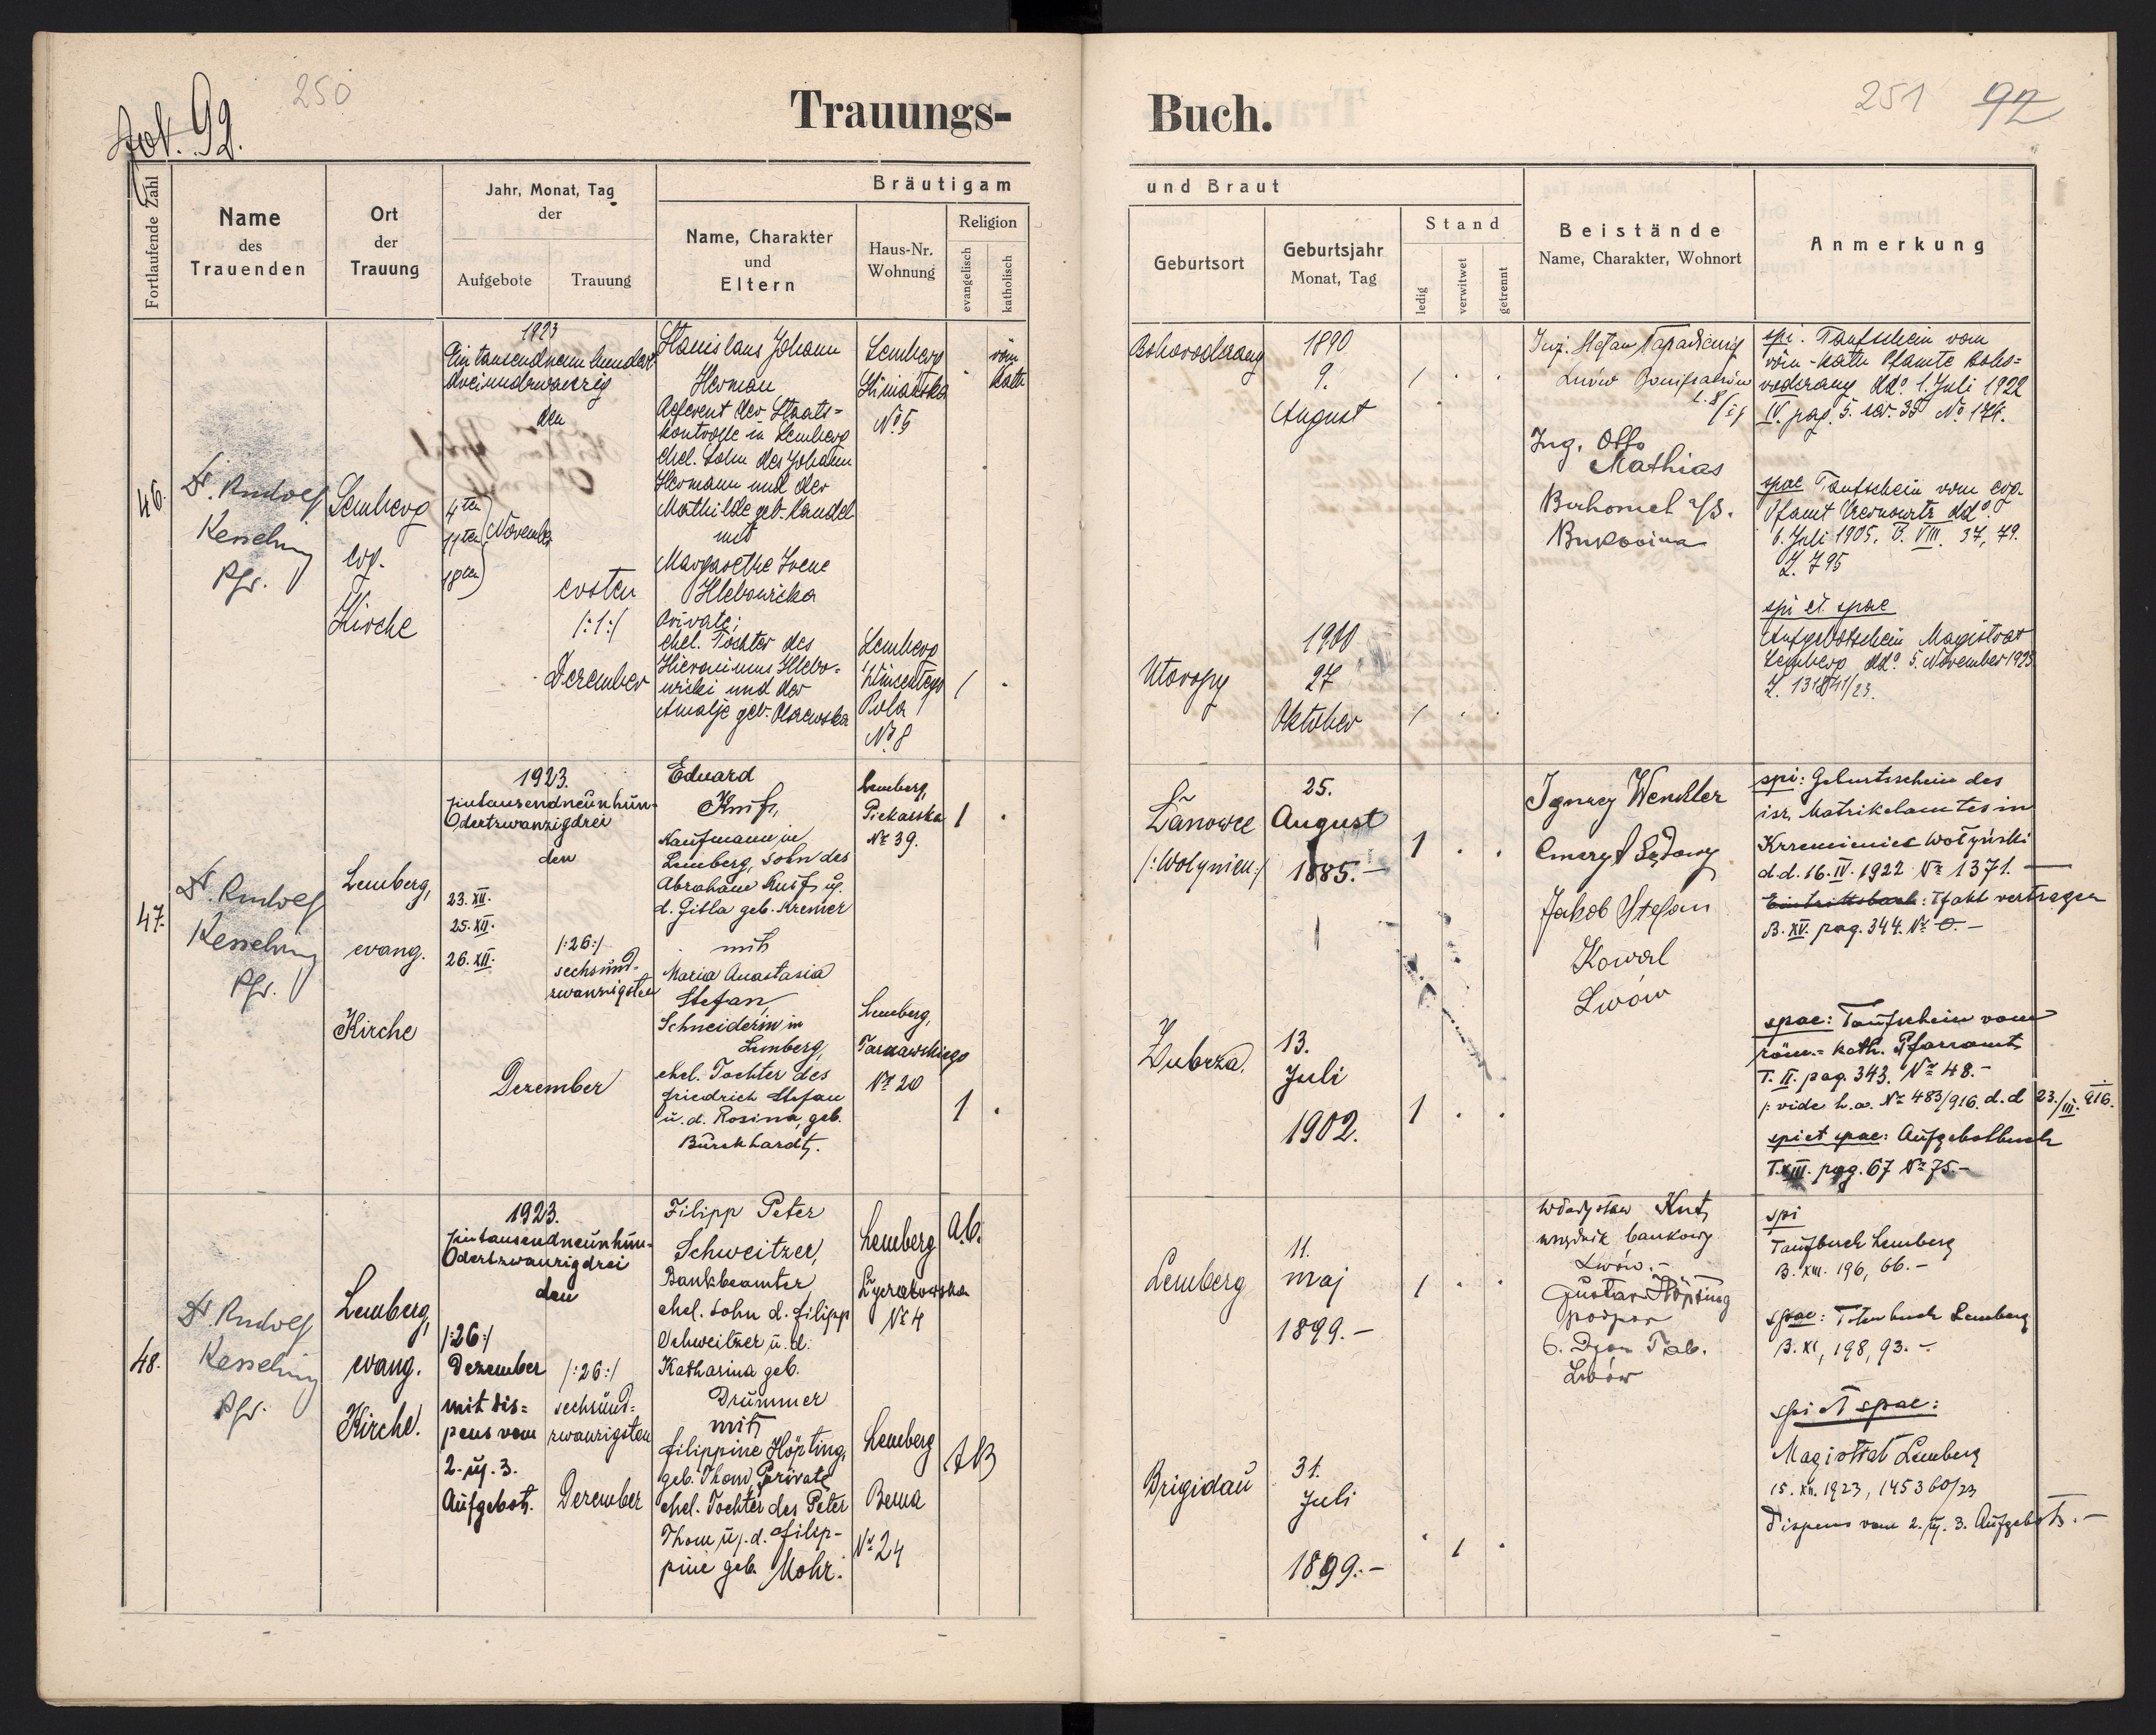 Fol. 92.
250
Trauungs-
Fortlaufende Zahl
Name
des
Trauenden
Ort
der
Trauung
Jahr, Monat, Tag
der
Aufgebote
Trauung
Bräutigam
Name, Charakter
und
Eltern
Haus-Nr.
Wohnung
Religion
evangelisch
katholisch
46.
Dr. Rudolf
Kesselring
Pfr.
Lemberg
evg.
Kirche
1923
Eintausendneunhundert
dreiundzwanzig
den
4ten
11ten
18ten
November
ersten
/:1:/
Dezember
Stanislaus Johann
Herman
Referent der Staats=
kontrolle in Lemberg
ehel. Sohn des Johann
Hermann und der
Mathilde geb. Kandel
mit
Margarethe Irene
Hlebowicka
Private;
ehel. Tochter des
Hieronimus Hlebo=
wicki und der
Amalje geb.
Lemberg
No 5
Lemberg
Wincentego
Pola
No 8
röm
kath
47.
Dr. Rudolf
Kesselring
Pfr.
Lemberg,
evang.
Kirche
1923.
Eintausendneunhun-
dertzwanzigdrei
den
23. XII.
25. XII.
26. XII.
/:26:/
sechsund-
zwanzigsten
Dezember
Eduard
Knif,
Kaufmann in
Lemberg, Sohn des
Abraham Knif u.
d. Gitla geb. Kremer
mit
Maria Anastasia
Stefan,
Schneiderin in
Lemberg,
ehel. Tochter des
Friedrich Stefan
u. d. Rosina, geb.
Burckhardt.
Lemberg,
Piekarska
No 39.
1
Lemberg,
Tarnawskiego
No 20
1
48.
Dr. Rudolf
Kesselring
Pfr.
Lemberg,
evang.
Kirche.
1923.
Eintausendneunhun-
dertzwanzigdrei
den
/:26:/
Dezember
mit Dis=
pens vom
2. u. 3.
Aufgebot.
/:26:/
sechsund=
zwanzigsten
Dezember
Filipp Peter
Schweitzer,
Bankbeamter,
ehel. Sohn d. Filipp
Schweitzer u. d.
Katharina geb.
Drummer
mit
Filippine Höpting,
geb. Thom, Private
ehel. Tochter des Peter
Thom u. d. Filip-
pine geb. Mohr.
Lemberg
Łyczakowska
No 4
A.B.
Lemberg
Bema
No 24
AB
251
92
Buch.
und Braut
Geburtsort
Geburtsjahr
Monat, Tag
Stand
ledig
verwitwet
getrennt
Beistände
Name, Charakter, Wohnort
Anmerkung
Bohorodczany
1890
9.
August
Utoropy
1900
27
Oktober
Inż. Stefan
Lwów
Ing. Otto
Mathias
Bukowina
spi. Taufschein vom
röm-kath Pfamte Boho=
rodczany ddo 1. Juli 1922
IV. pag. 5. No 174.
spae Taufschein vom evg.
Pfamt Czernowitz ddo
6. Juli 1905. B. VIII. 37, 79.
Z. 795
spi et spae
Aufgebotschein Magistrat
Lemberg ddo 5. November 1923
Łanowce
/:Wolynien:/
25.
August
1885.-
1
Ignacy Wendler
emeryt Sądowy
Jakob Stefan
Kowal
Lwów
spi: Geburtsschein des
isr. Matrikelamtes in
Krzemieniec Wołyński
d.d. 16. IV. 1922 No 1371.
B. XV. pag. 344. No
Zubrza.
13.
Juli
1902.
1
spae: Taufschein vom
röm.- kath. Pfarramt
T. II. pag. 343. No 48.-
/: vide h.a. No 483/916. d.d 23./III. 916.
spi et spae: Aufgebotbuch
T. XIII. pag. 67 No 75.-
Lemberg
11.
maj
1899.-
Władysław Kutz
urzędnik bankowy
Lwów.-
Gustav Höpting
podpor
Lwów
spi
Taufbuch Lemberg
B. XIII. 196, 66.-
spae: Totenbuch Lemberg
B. XI, 198, 93.-
spi et spae:
Magistrat Lemberg
15. XII. 1923, 145360/23
Dispens vom 2. u. 3. Aufgebots.-
Brigidau
31.
Juli
1899.-